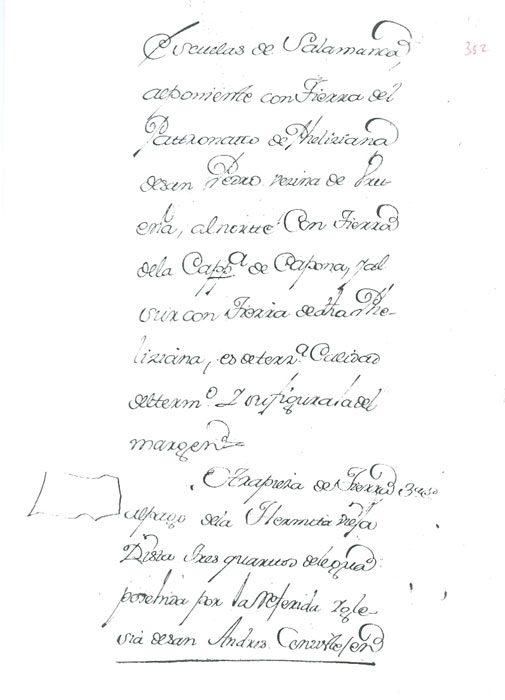 352
Escuelas de Salamanca,
al poniente con Tierra del
Patronatto de Pheliziana
de san Pedro vezina de
, al norte Con Tierra
de la Capp.ª de Capona, y al
sur con Tierra de dha Phe-
liziana, es de terz.ª Calidad
del term.º Y su figura la del
margen=
Otra pieza de Tierra
al pago de la Hermita vieja
Dista tres quartos de legua
posehida por la Referida Ygle-
sia de san Andres